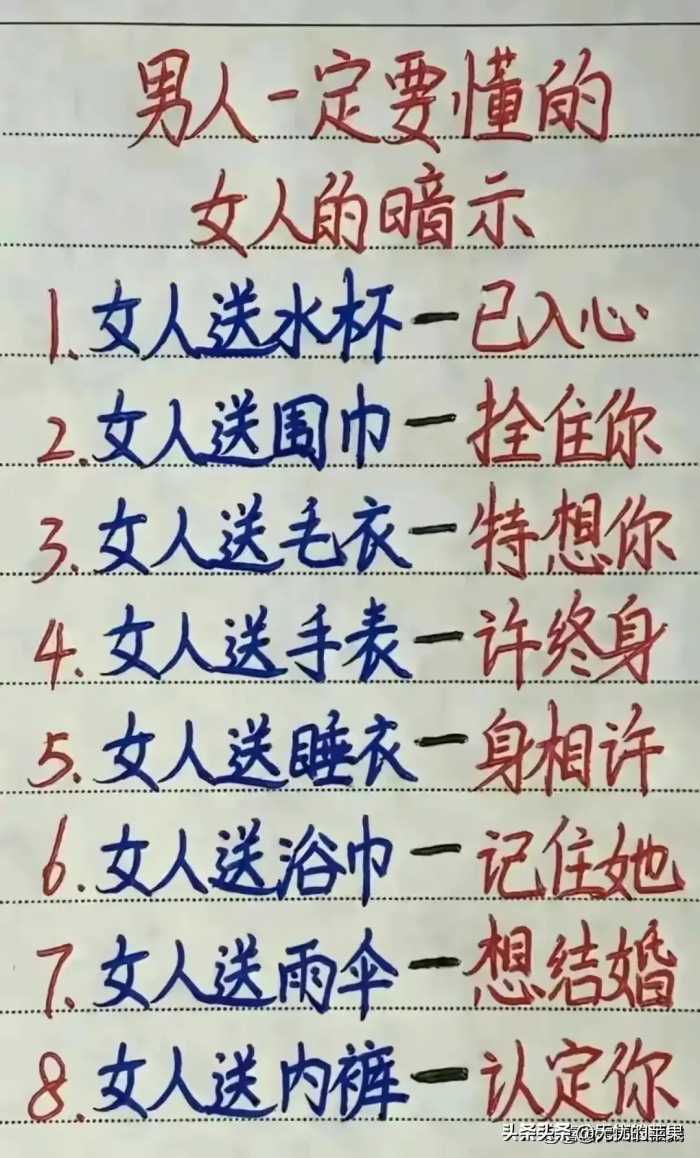 男人一定要懂的
女人的暗示
1.女人送水杯一已入心
2.女人送围巾一拴住你
3.女人送毛衣一特想你
4.女人送手表一许终身
5.女人送睡衣一身相许
6.女人送浴巾一记住她
7.女人送雨伞一想结婚
8.女人送内裤一认定你
头条头条@无忧的苹果